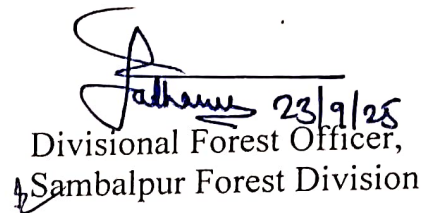 23/9/25
Divisional Forest Officer,
Sambalpur Forest Division